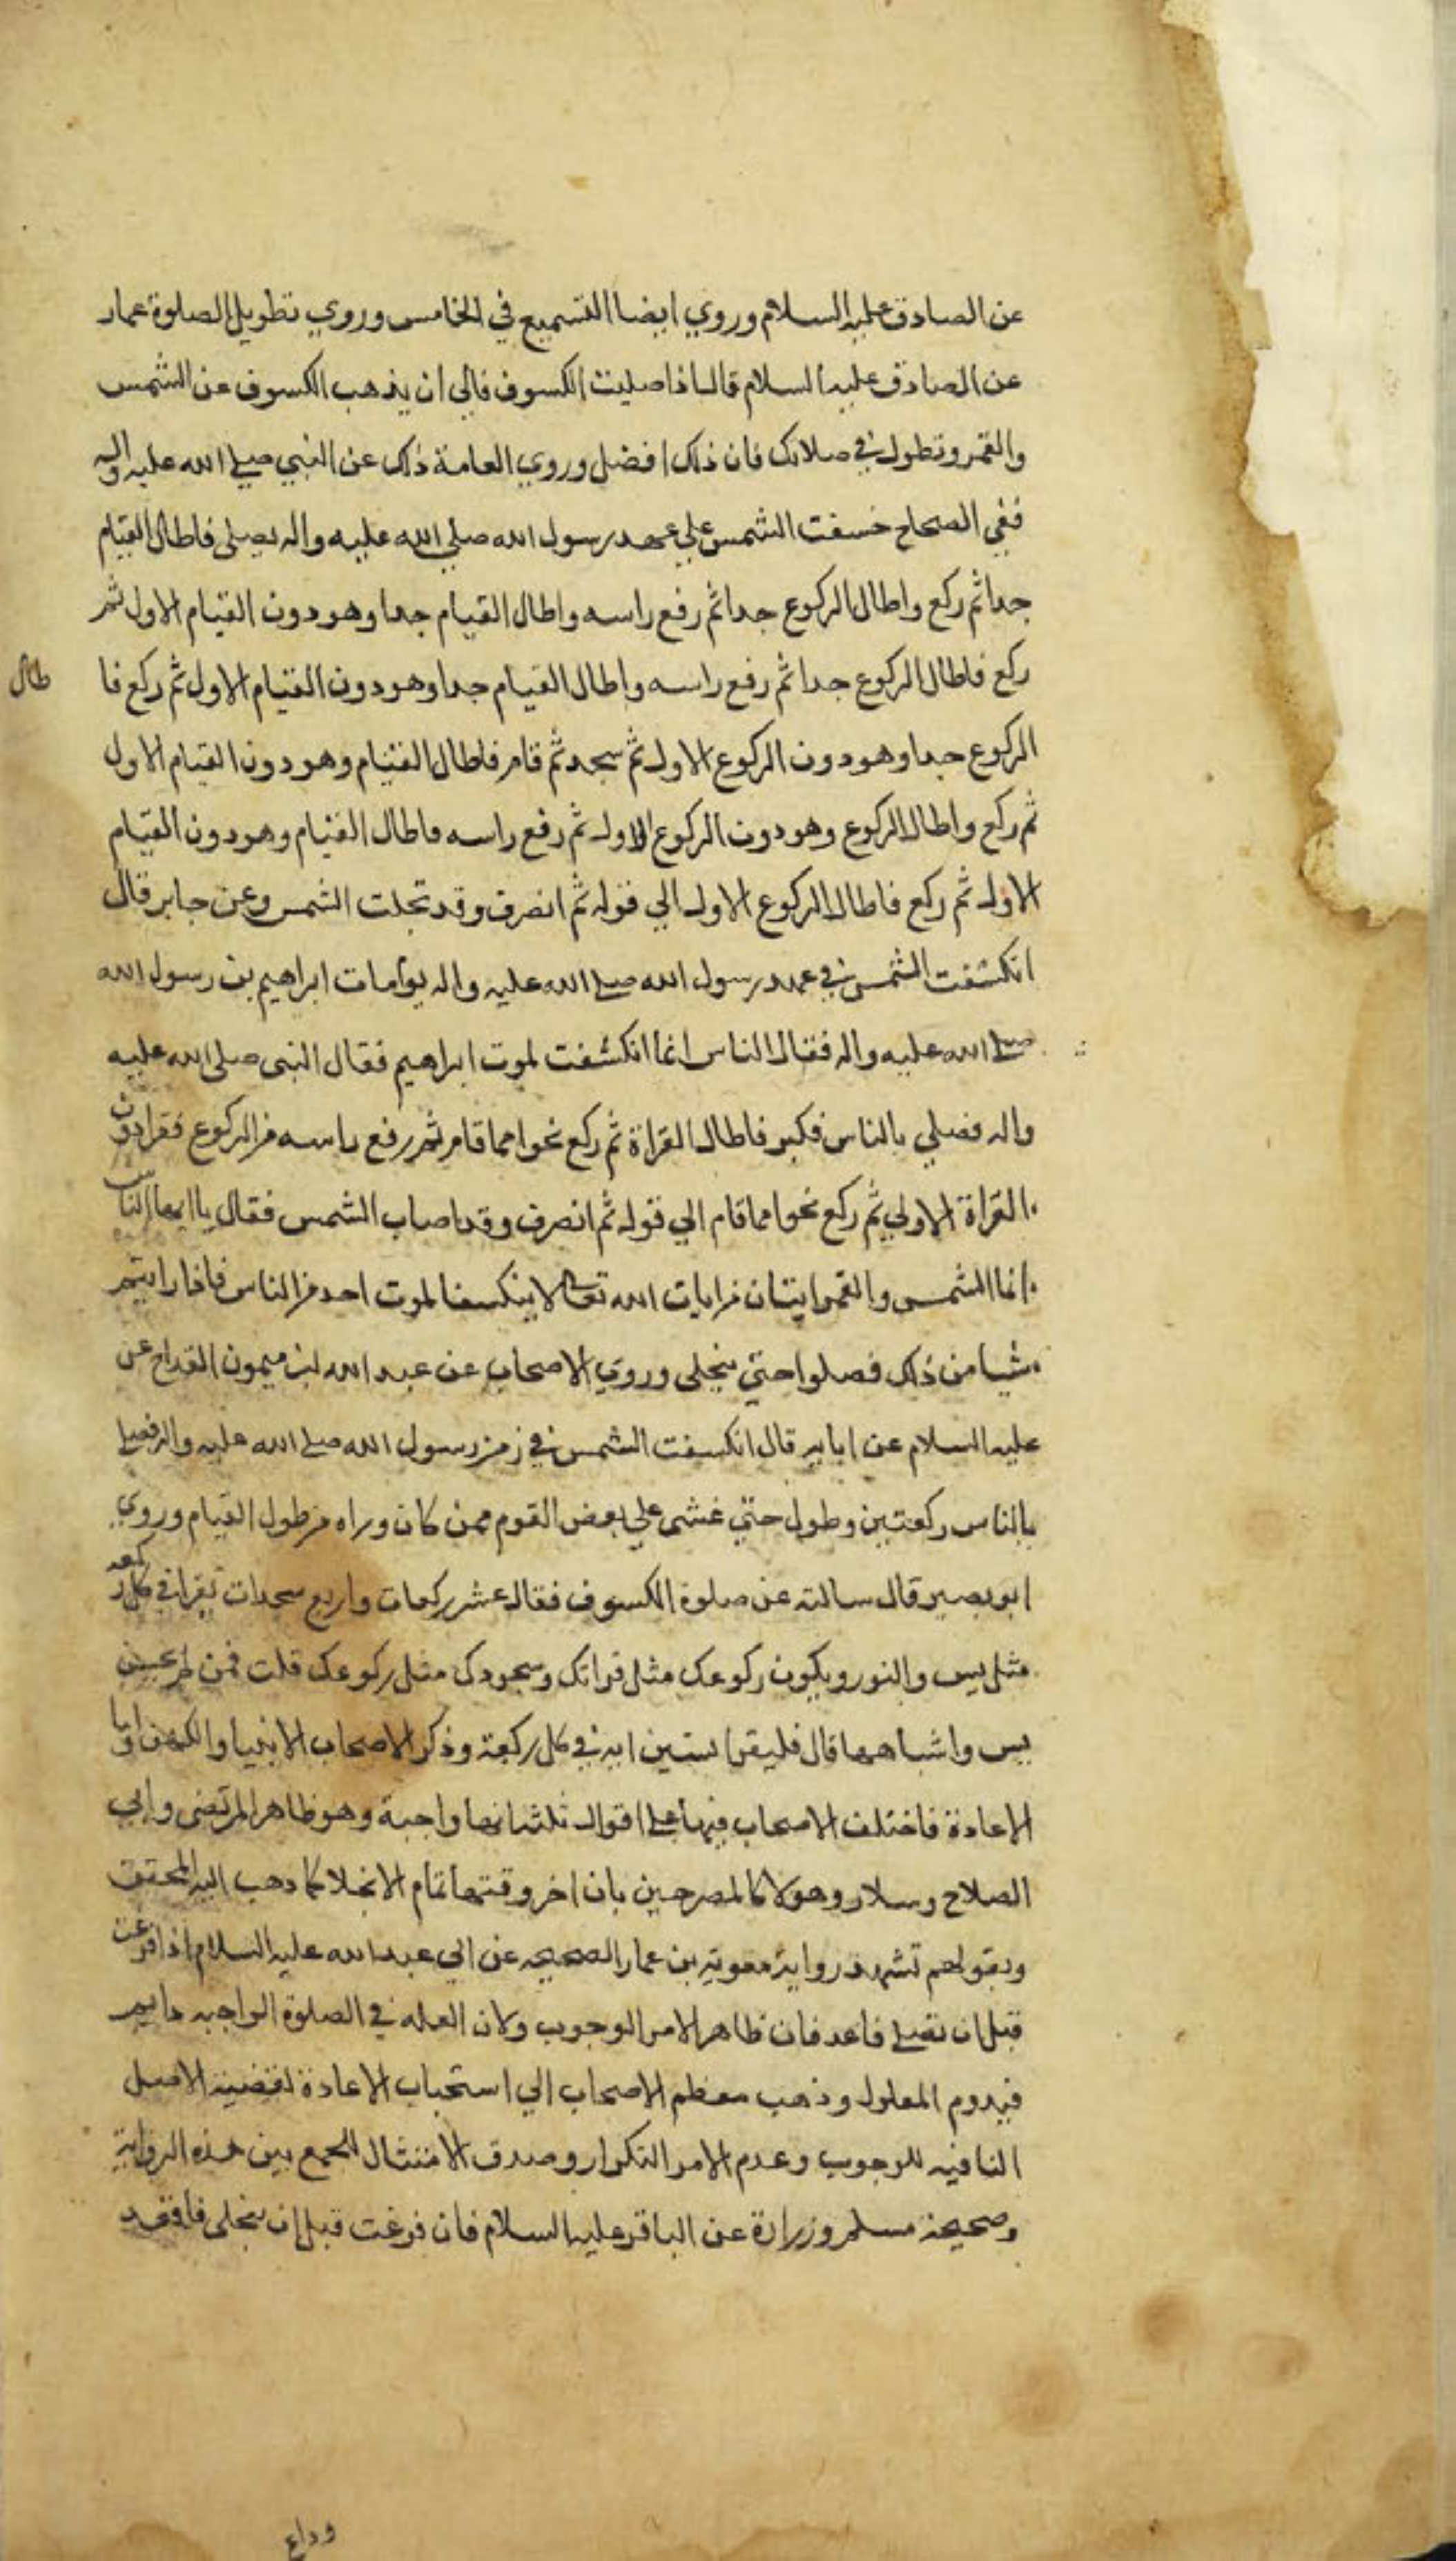 عن الصادق عليه السلام وروي ايضا التسميع في الخامس وروي تطويل الصلوة عمار
عن الصادق عليه السلام قال اذا صليت الكسوف فالي ان يذهب الكسوف عن الشمس
والقمر وتطول في صلاتك فان ذلك افضل وروي العامة ذلك عن النبي صلى الله عليه واله
ففي الصحاح خسفت الشمس علي عهد رسول الله صلي الله عليه واله يصلى فاطال القيام
جدا ثم ركع واطال الركوع جدا ثم رفع راسه واطال القيام جدا وهو دون القيام الاول ثم
ركع فاطال الركوع جدا ثم رفع راسه واطال القيام جدا وهو دون القيام الاول ثم ركع فا
طال
الركوع جدا وهو دون الركوع الاول ثم سجد ثم قام فاطال القيام وهو دون القيام الاول
ثم ركع واطال الركوع وهو دون الركوع الاول ثم رفع راسه فاطال القيام وهو دون القيام
الاول ثم ركع فاطال الركوع الاول الي قوله ثم انصرف وقد تجلت الشمس وعن جابر قال
انكشفت الشمس في عهد رسول الله صلى الله عليه واله يوم مات ابراهيم بن رسول الله
صلى الله عليه واله فقال الناس انما انكشفت لموت ابراهيم فقال النبى صلى الله عليه
واله فصلي بالناس فكبر فاطال القراة ثم ركع نحوا مما قام ثم رفع راسه من الركوع فقرا دون
القراة الاولي ثم ركع نحوا مما قام الي قوله ثم انصرف وقد اصاب الشمس فقال يا ايها الناس
انما الشمس والقمر ايتان من ايات الله تعالى لا ينكسفا لموت احد من الناس فاذا رايتم
شيا من ذلك فصلوا حتي ينجلى وروي الاصحاب عن عبد الله ابن ميمون القداح عن
عليه السلام عن ابايه قال انكسفت الشمس في زمن رسول الله صلى الله عليه واله فصلى
بالناس ركعتين وطول حتي غشى علي بعض القوم ممن كان وراه من طول القيام وروي
ابو بصير قال سالته عن صلوة الكسوف فقال عشر ركعات واربع سجدات تقرا في كل ركعه
مثل يس والنور ويكون ركوعك مثل قراتك وسجودك مثل ركوعك قلت فمن لم يحسن
يس واشباهها قال فليقرا ستين ايه في كل ركعة وذكر الاصحاب الانبيا والكهف واما
الاعادة فاختلف الاصحاب فيها على اقوال ثلثه انها واجبة وهو ظاهر المرتضى وابي
الصلاح وسلار وهولا كالمصرحين بان اخر وقتها تمام الانجلا كما دهب اليه المحقق
وبقولهم تشهد رواية معوية بن عمار الصحيحه عن ابي عبد الله عليه السلام اذا فرغت
قبل ان تصلى فاعد فان ظاهر الامر الوجوب ولان العله في الصلوة الواجبه دايم
فيدوم المعلول وذهب معظم الاصحاب الي استحباب الاعادة لقضيته الاصل
النافيه للوجوب وعدم الامر التكرار وصدق الامتثال للجمع بين هذه الرواية
وصحيحة مسلم وزرارة عن الباقر عليه السلام فان فرغت قبل ان ينجلى فاقعد
وداع